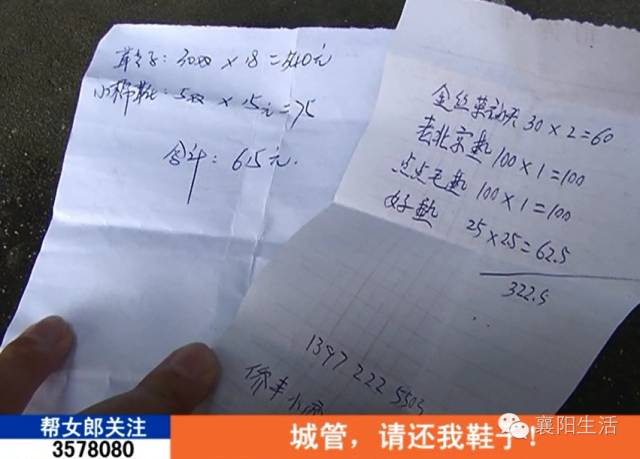 30双 × 18 = 540元
小棉靴: 5双 × 15元 = 75
合计: 615元.
30 × 2 = 60
老北京垫 100 × 1 = 100
点点毛垫 100 × 1 = 100
好垫 25 × 25 = 62.5
322.5
1397 222
帮女郎关注
3578080
城管，请还我鞋子！
襄阳生活